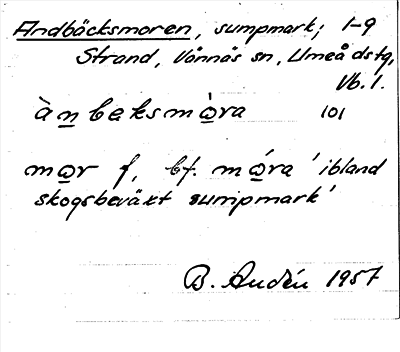 Andbäcksmoren, sumpmark; 1-9
Strand, Vännäs sn, Umeå dstg,
Vb. 1.
àn̲beksmò̲ra 101
mo̲r f, bf. mó̲ra 'ibland
skogsbeväxt sumpmark'
B. Audén 1957